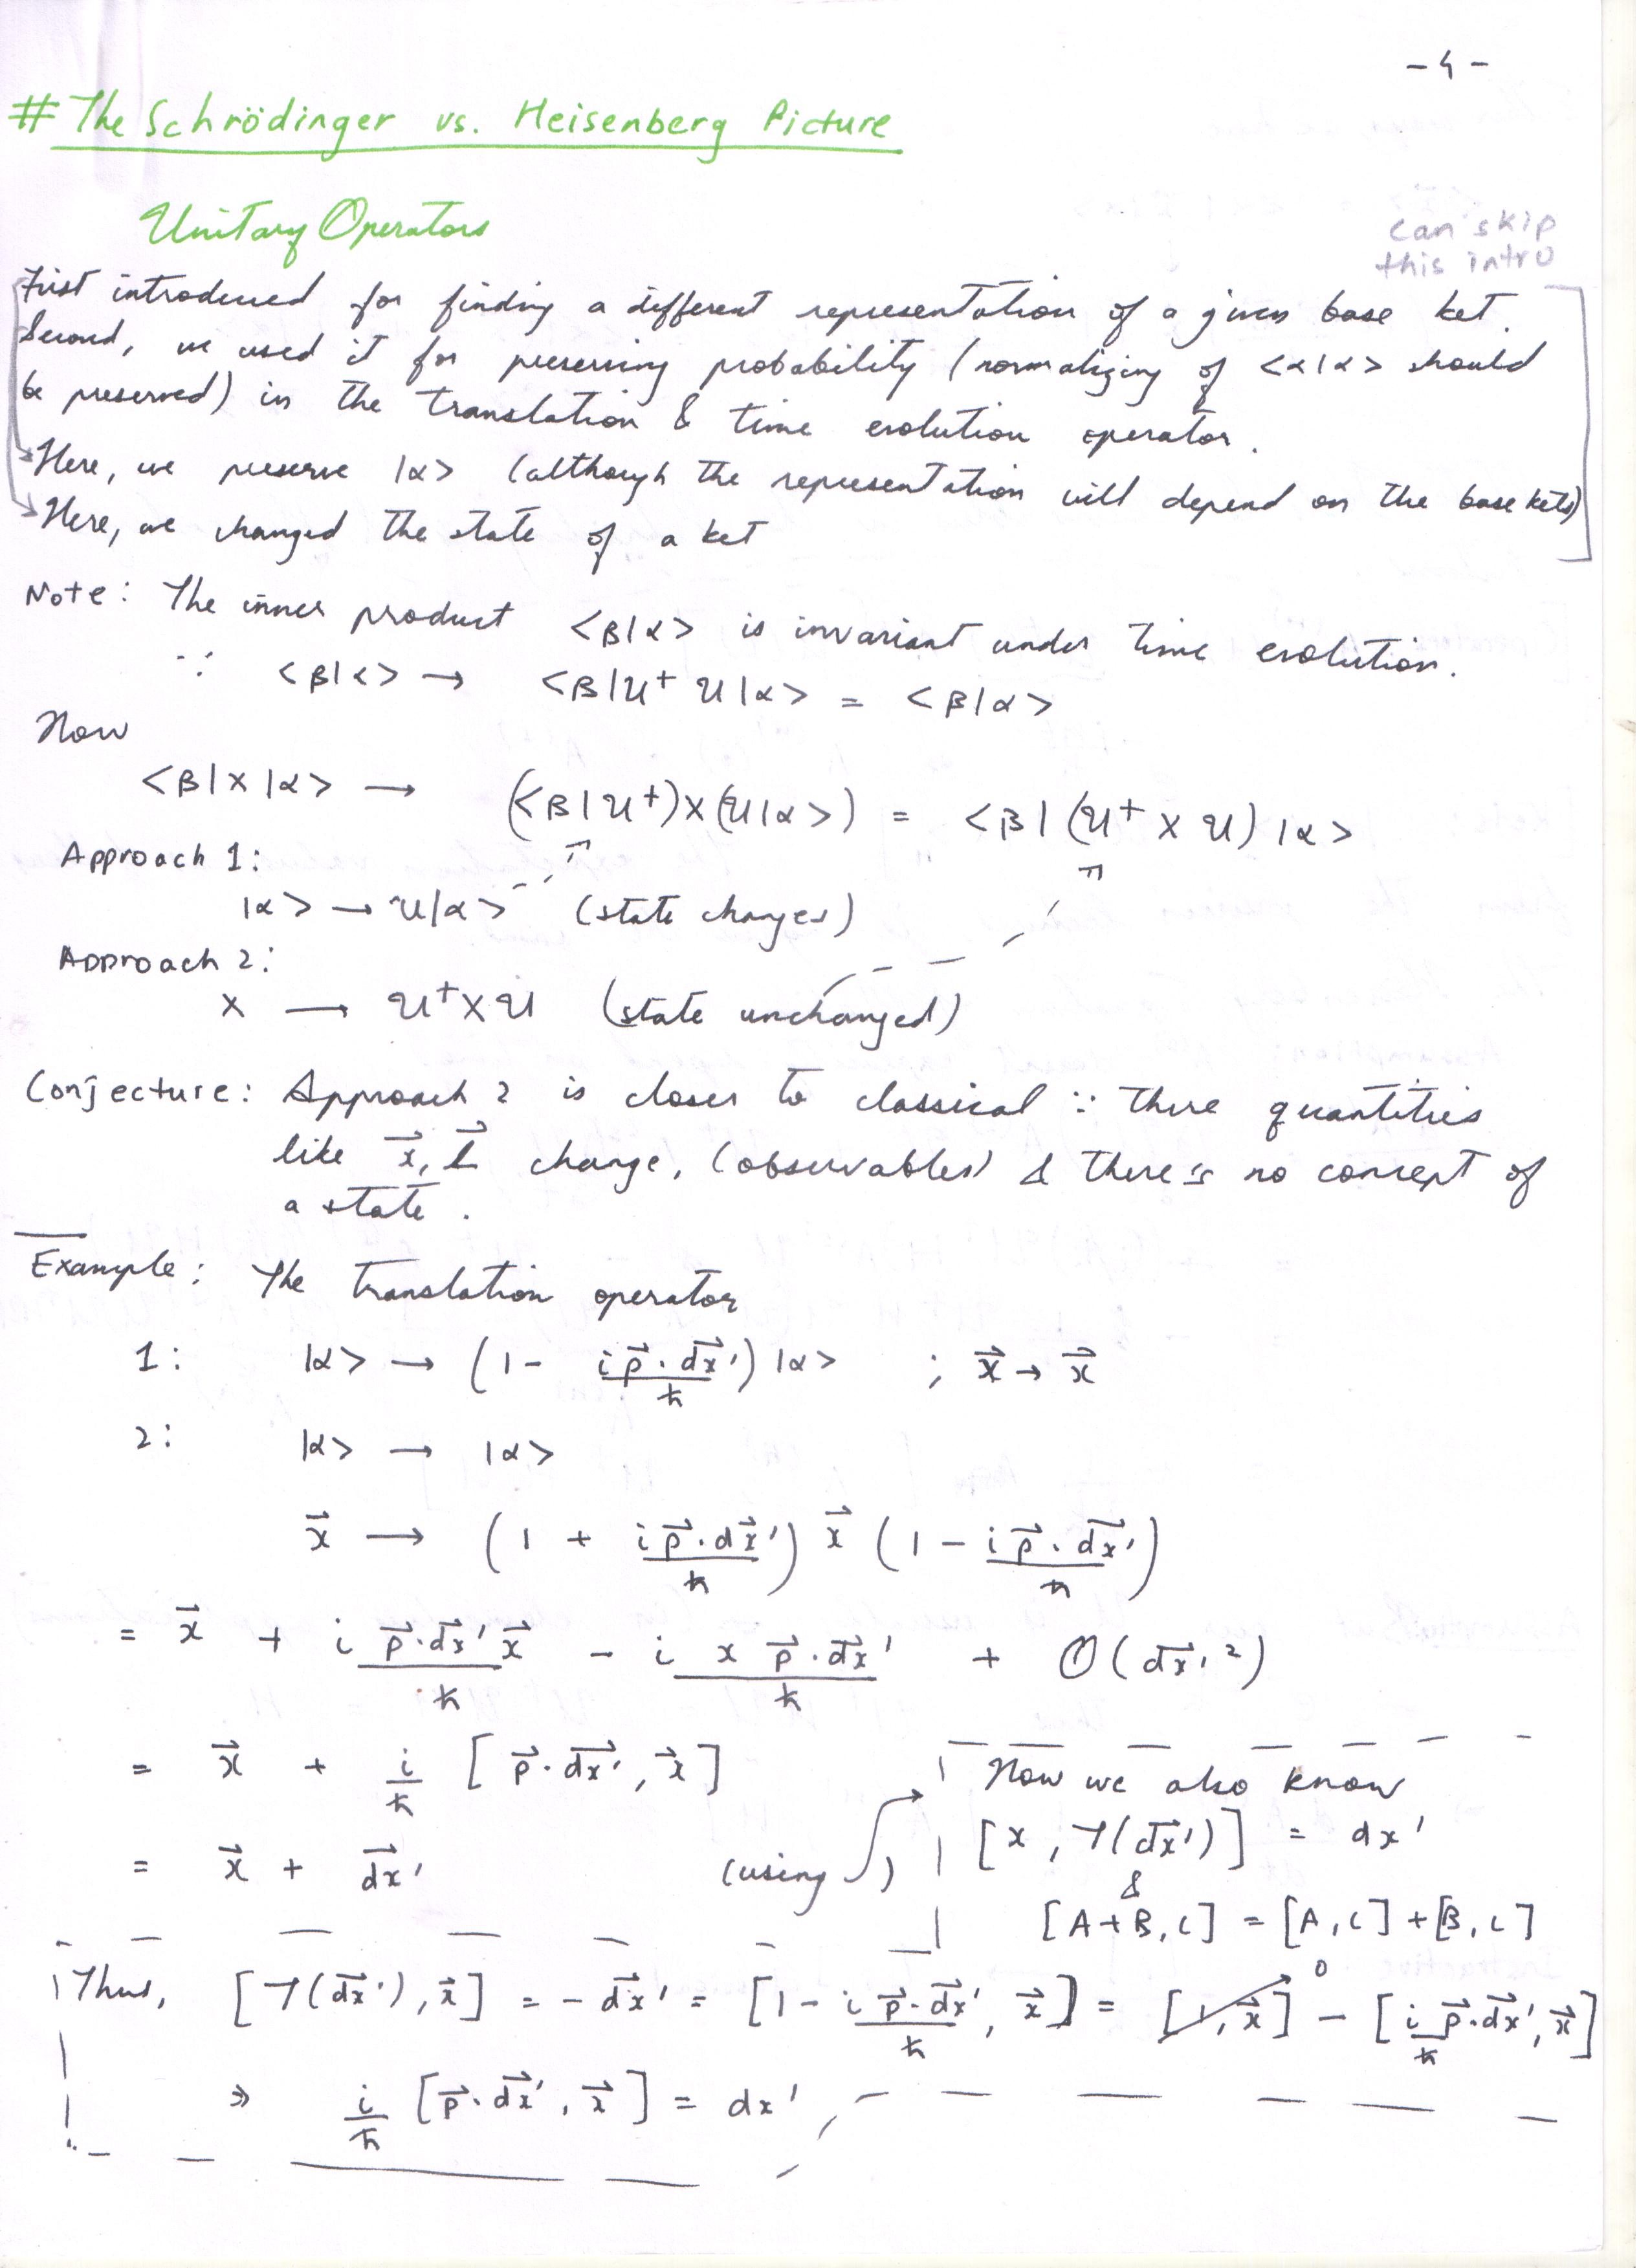 - 4 -
# The Schrödinger vs. Heisenberg Picture
Unitary Operators
can skip
this intro
First introduced for finding a different representation of a given base ket.
Second, we used it for preserving probability (normalizing of <α|α> should
be preserved) in the translation & time evolution operator.
Here, we preserve |α> (although the representation will depend on the base kets)
Here, we changed the state of a ket
Note: The inner product <β|α> is invariant under time evolution.
∵ <β|α> → <β|U† U|α> = <β|α>
Now
<β|X|α> → (<β|U†)X(U|α>) = <β|(U† X U)|α>
Approach 1:
|α> → U|α> (state changes)
Approach 2:
X → U†XU (state unchanged)
Conjecture: Approach 2 is closer to classical ∵ there quantities
like x⃗, L⃗ change, (observables) & there is no concept of
a state.
Example: The translation operator
1: |α> → (1 - i p⃗·dx⃗'/ħ) |α> ; x⃗ → x⃗
2: |α> → |α>
x⃗ → (1 + i p⃗·dx⃗'/ħ) x⃗ (1 - i p⃗·dx⃗'/ħ)
= x⃗ + i p⃗·dx⃗' x⃗/ħ - i x p⃗·dx⃗'/ħ + O(dx⃗'²)
= x⃗ + i/ħ [p⃗·dx⃗', x⃗]
Now we also know
[x, T(dx⃗')] = dx'
&
[A+B, C] = [A, C] + [B, C]
= x⃗ + dx⃗' (using )
Thus, [T(dx⃗'), x⃗] = - dx⃗' = [1 - i p⃗·dx⃗'/ħ, x⃗] = [1, x⃗] 0 - [i/ħ p⃗·dx⃗', x⃗]
⇒ i/ħ [p⃗·dx⃗', x⃗] = dx'